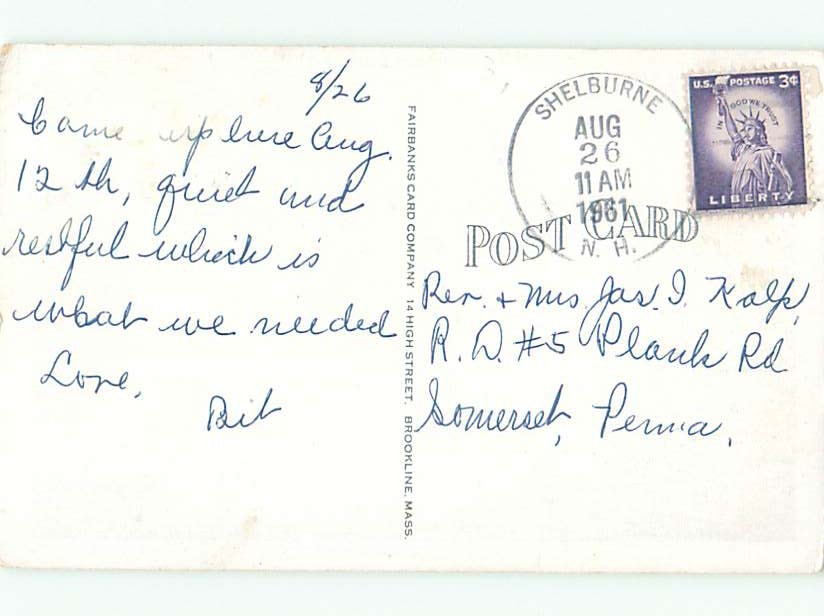 8/26
Came up here Aug.
12 th, quiet and
restful which is
what we needed
Love,
Bit
FAIRBANKS CARD COMPANY 14 HIGH STREET, BROOKLINE, MASS.
SHELBURNE
AUG
26
11 AM
1961
N. H.
U.S. POSTAGE 3¢
IN GOD WE TRUST
LIBERTY
POST CARD
Rev. + Mrs Jas. I. Kalp,
R. D. #5 Plank Rd
Somerset, Penna.